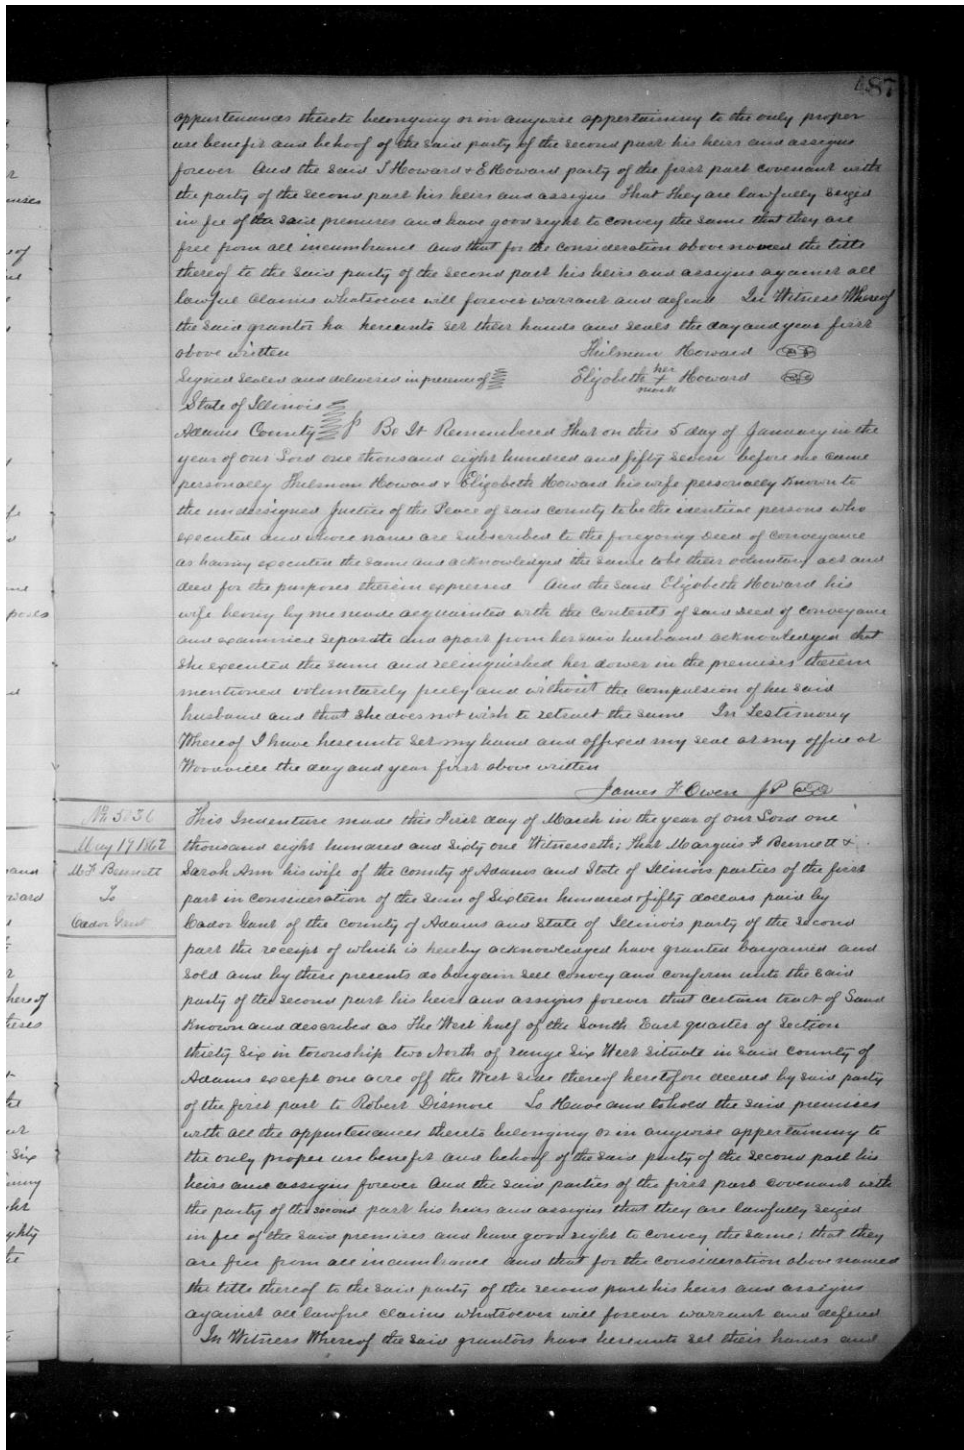 487
appurtenances thereto belonging or in anywise appertaining to the only proper
use benefit and behoof of the said party of the second part his heirs and assigns
forever And the said T Howard & E Howard party of the first part covenant with
the party of the second part his heirs and assigns That they are lawfully seized
in fee of the said premises and have good right to convey the same that they are
free from all incumbrance and that for the consideration above named the title
thereof to the said party of the second part his heirs and assigns against all
lawful claims whatsoever will forever warrant and defend In Witness Whereof
the said grantor ha hereunto set their hands and seals the day and year first
above written Thilman Howard
Signed sealed and delivered in presence of Elizabeth her x mark Howard
State of Illinois
Adams County Be It Remembered That on this 5 day of January in the
year of our Lord one thousand eight hundred and fifty seven before me came
personally Thilman Howard & Elizabeth Howard his wife personally Known to
the undersigned Justice of the Peace of said county to be the identical persons who
executed and whose names are subscribed to the foregoing deed of conveyance
as having executed the same and acknowledged the same to be their voluntary act and
deed for the purposes therein expressed And the said Elizabeth Howard his
wife being by me made acquainted with the contents of said deed of conveyance
and examined separate and apart from her said husband acknowledged that
she executed the same and relinquished her dower in the premises therein
mentioned voluntarily freely and without the compulsion of her said
husband and that she does not wish to retract the same In Testimony
Whereof I have hereunto set my hand and affixed my seal at my office at
Woodville the day and year first above written
James F Owen JP
May 19 1862
M F Bennett
To
Cador Gant
This Indenture made this First day of March in the year of our Lord one
thousand eight hundred and sixty one Witnesseth; That Marquis F Bennett &
Sarah Ann his wife of the county of Adams and State of Illinois parties of the first
part in consideration of the sum of Sixteen hundred & fifty dollars paid by
Cador Gant of the county of Adams and State of Illinois party of the second
part the receipt of which is hereby acknowledged have granted bargained and
sold and by these presents do bargain sell convey and confirm unto the said
party of the second part his heirs and assigns forever that certain tract of Land
Known and described as The West half of the South East quarter of Section
thirty six in township two North of range six West situate in said county of
Adams except one acre off the West side thereof heretofore deeded by said party
of the first part to Robert Dismore To Have and to hold the said premises
with all the appurtenances thereto belonging or in anywise appertaining to
the only proper use benefit and behoof of the said party of the second part his
heirs and assigns forever And the said parties of the first part covenant with
the party of the second part his heirs and assigns that they are lawfully seized
in fee of the said premises and have good right to convey the same; that they
are free from all incumbrance and that for the consideration above named
the title thereof to the said party of the second part his heirs and assigns
against all lawful claims whatsoever will forever warrant and defend
In Witness Whereof the said grantors have hereunto set their hands and